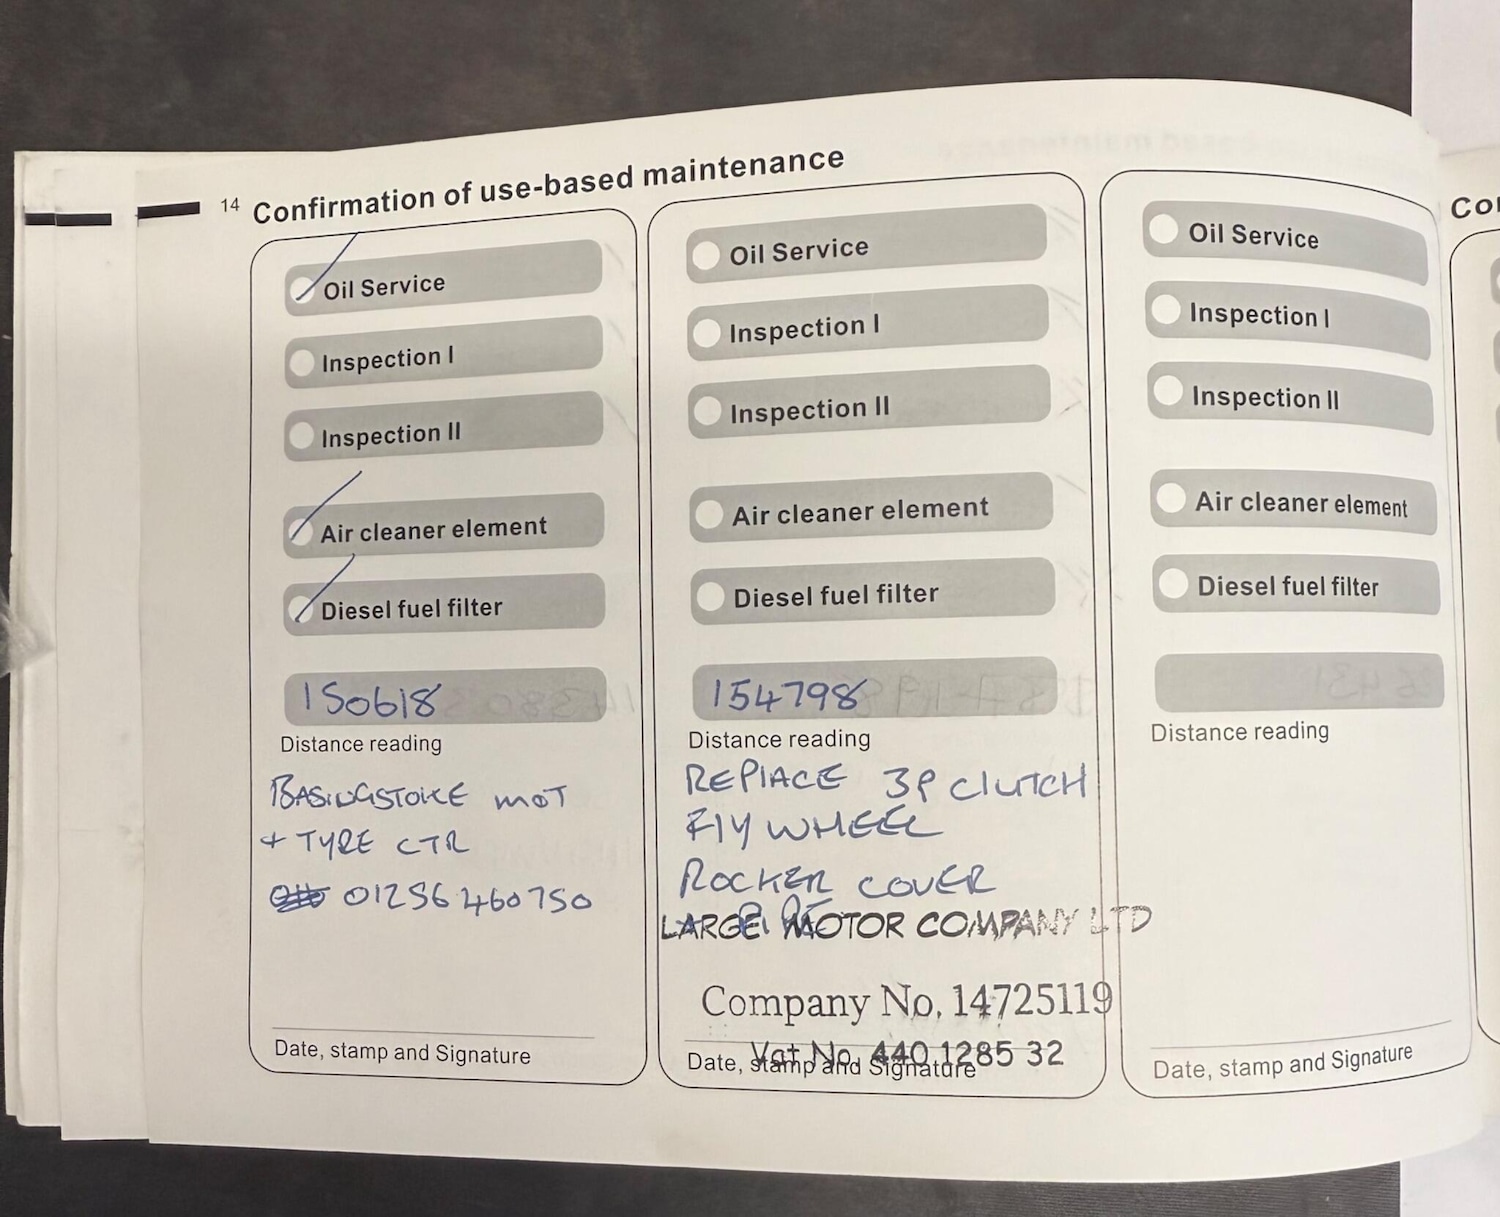 14 Confirmation of use-based maintenance
Oil Service
Inspection I
Inspection II
Air cleaner element
Diesel fuel filter
150618
Distance reading
BASINGSTOKE MOT
+ TYRE CTR
01256 460750
Date, stamp and Signature
Oil Service
Inspection I
Inspection II
Air cleaner element
Diesel fuel filter
154798
Distance reading
REPLACE 3P CLUTCH
FLYWHEEL
ROCKER COVER
LARGE MOTOR COMPANY LTD
Company No. 14725119
Vat No. 440 1285 32
Date, stamp and Signature
Oil Service
Inspection I
Inspection II
Air cleaner element
Diesel fuel filter
Distance reading
Date, stamp and Signature